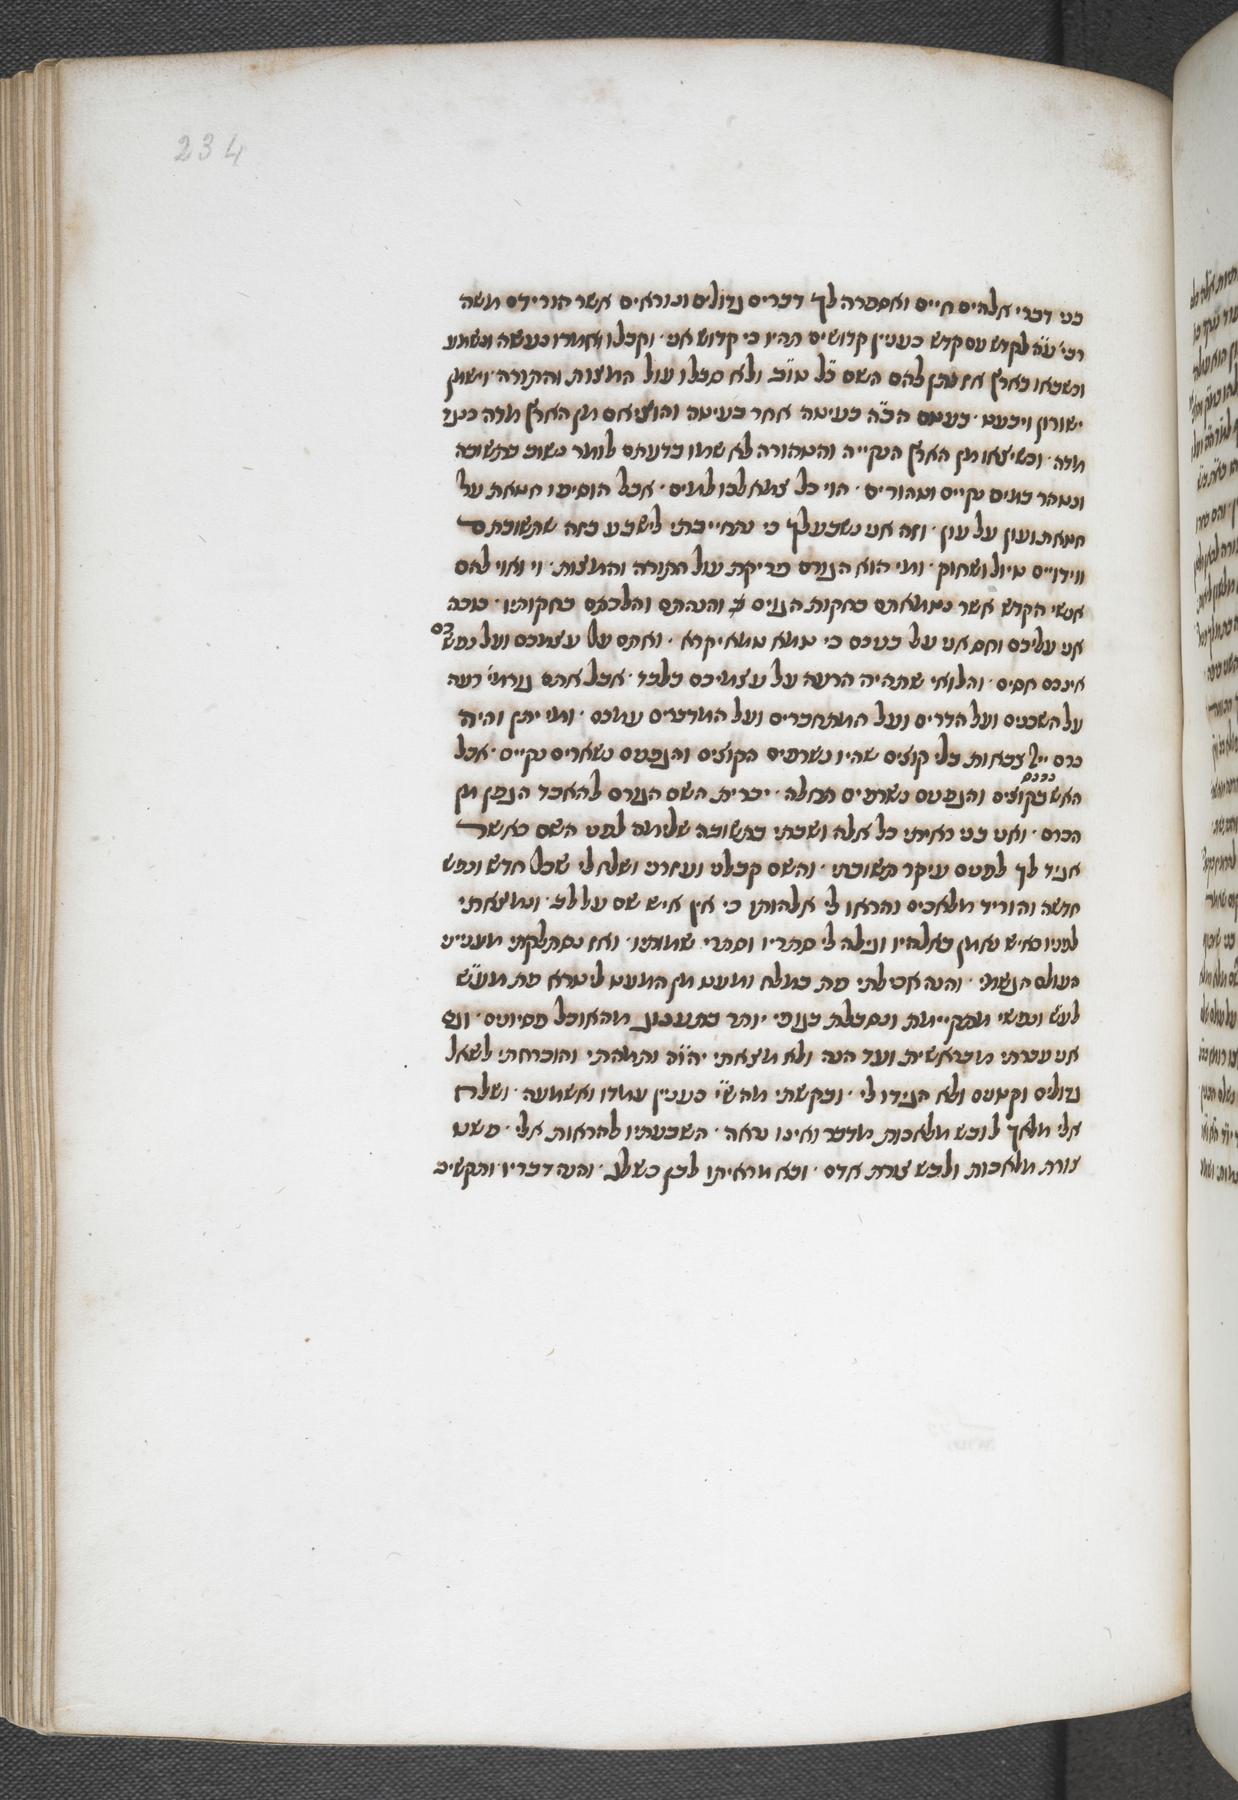 234
בני דברי אלהים חיים ואספרה לך דברים גדולים ונוראים אשר הורידם משה
רבי' ע"ה לקדש עם קדש כענין קדושים תהיו כי קדוש אני · וקבלו ואמרו נעשה ונשמע
וכשבאו בארץ אז נתן להם השם כל טוב ולא סבלו עול המצות והתורה · וישמן
ישורון ויבעט · בעטם הב"ה בעיטה אחר בעיטה והוציאם מן הארץ מדה כנגד
מדה · וכשיצאו מן הארץ הנקייה והטהורה לא שמו בדעתם לומר נשוב בתשובה
ונטהר במים נקיים וטהורים · הוי כל צמא לכו למים · אבל הוסיפו חטאת על
חטאת ועון על עון · וזה אני נשבע לך כי נתחייבתי לישבע בזה שתשובתם
ווידויים טיול ושחוק · ומי הוא הגורם פריקת עול התורה והמצות · וי ואוי להם
אנשי הקדש אשר נטמאתם בחקות הגוים והנהתם והלכתם בחקותיו · בוכה
אני עליכם וחס אני על בניכם כי טמא טמא יקרא · ואתם על עצמכם ועל נפשכם
אינכם חסים · והלואי שתהיה הרעה על עצמיכם בלבד · אבל אתם גורמי' רעה
על השכנים ועל הדרים ועל המתחברים ועל המדברים עמכם · ומי יתן והיה
כרם ייי' צבאות בלי קוצים שהיו נשרפים הקוצים והגפנים נשארים נקיים · אבל
האש נכנס בקוצים והגפנים נשרפים תחלה · יכרית השם הגורם להאבד הגפן מן
הכרם · ואני בני ראיתי כל אלה ושבתי בתשובה שלימה לפני השם כאשר
אגיד לך לפנים עיקר תשובתי · והשם קבלני ועזרני ושלח לי שכל חדש ונפש
חדשה והוריד מלאכים והראו לי אלהותו כי אין איש שם על לב · ונמצאתי
לפניו כאיש נאמן באלהיו וגילה לי סתריו וסתרי שמותיו · ואז נסתלקתי מענייני
העולם הגשמי · והנה אכילתי פת במלח ומעט מן המעט ליטרא פת מע"ש
לע"ש ונפשי מתקיימת ונסבלת בגופי יותר בתענוג מהאוכל פסיונים · וגם
אני עברתי מבראשית ועד הנה ולא מצאתי יהו"ה ותמהתי והוכרחתי לשאל
גדולים וקטנים ולא הגידו לי · ובקשתי מהש"י כענין עמדו ואשמעה · ושלח
אלי מלאך לובש מלאכות מדבר ואינו נראה · השבעתיו להראות אלי · פשט
צורת מלאכות ולבש צורת אדם · ובא מראיתו לבן כשלג · והנה דבריו והקשיב